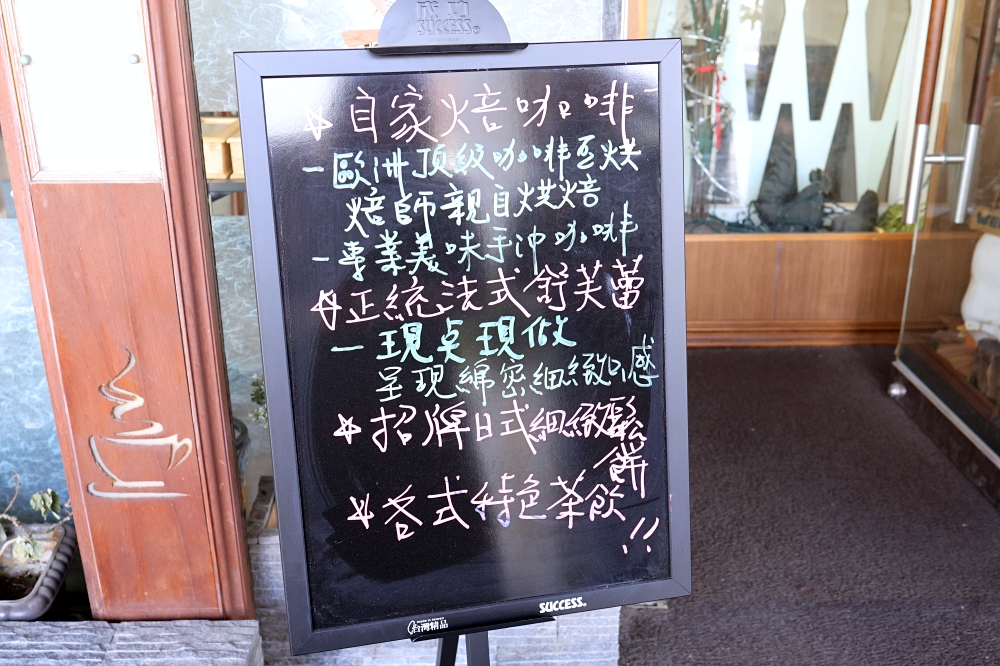 成功
SUCCESS
☆自家焙咖啡
－歐洲頂級咖啡豆烘
焙師親自烘焙
－專業美味手沖咖啡
☆正統法式舒芙蕾
－現桌現做
呈現綿密細緻口感
☆招牌日式細緻鬆
餅
☆各式特色茶飲
!!
SUCCESS
MADE IN TAIWAN
台灣精品